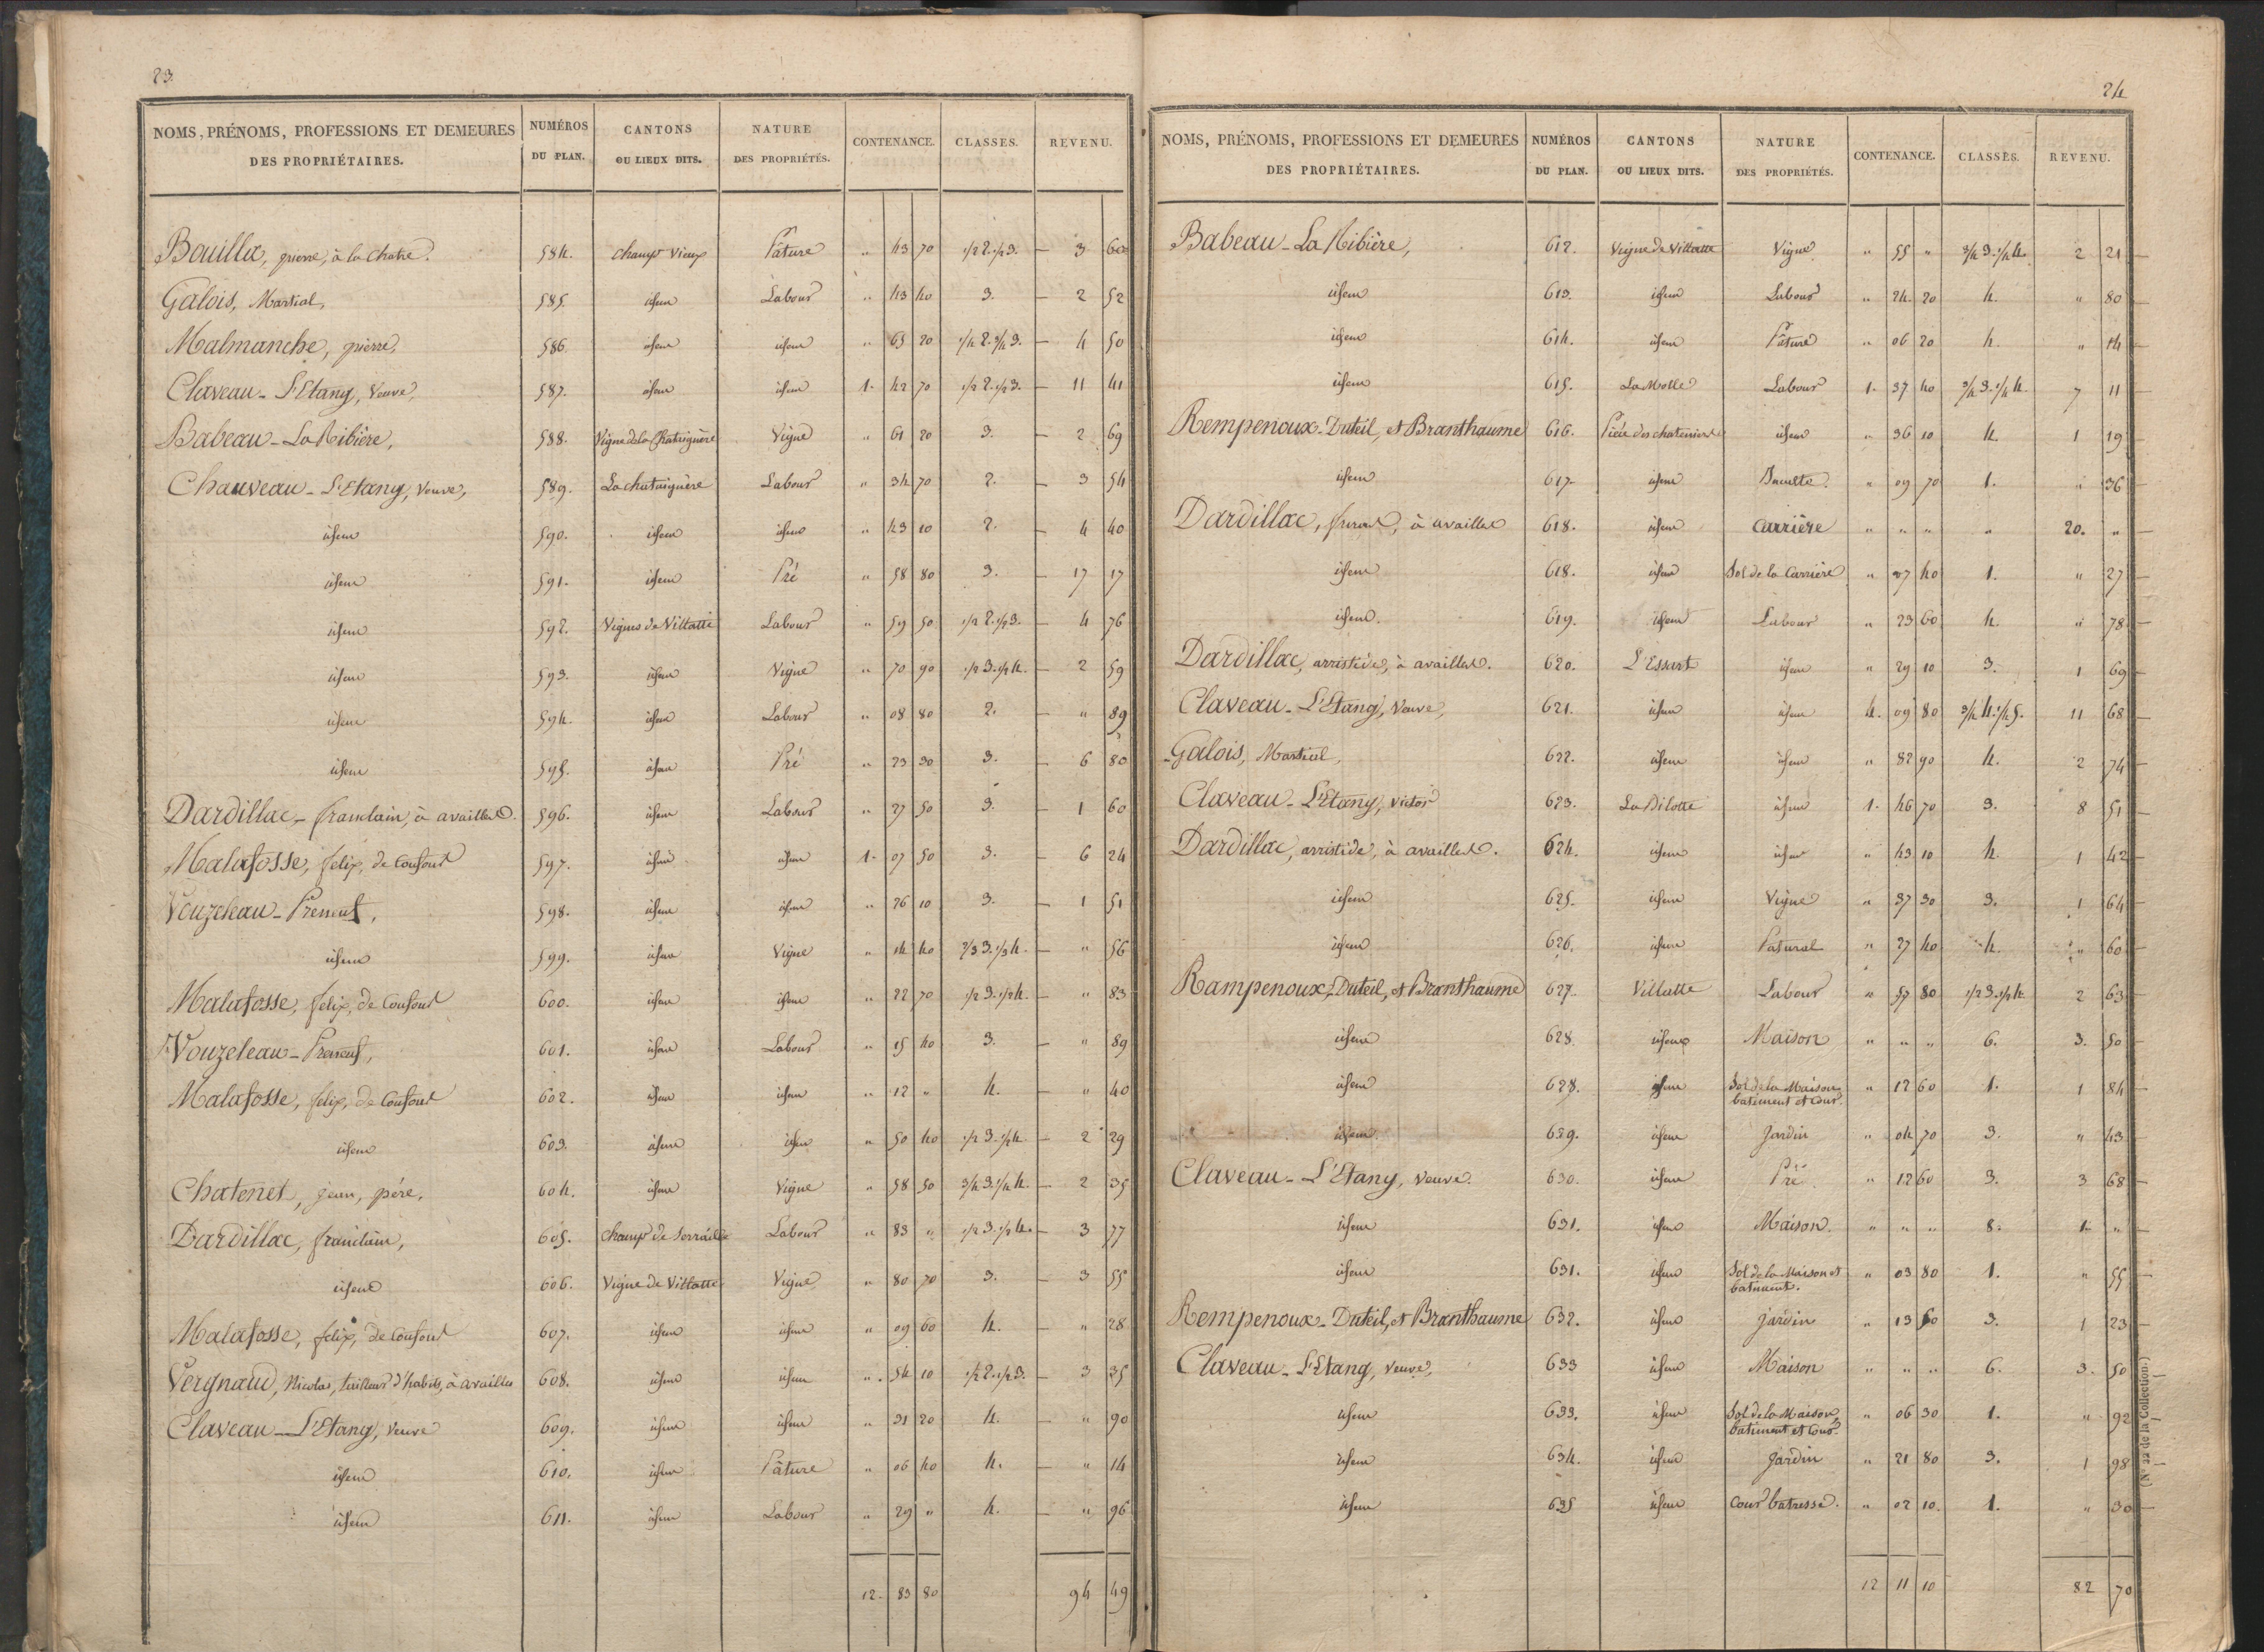 23.
NOMS, PRÉNOMS, PROFESSIONS ET DEMEURES DES PROPRIÉTAIRES. NUMÉROS DU PLAN. CANTONS OU LIEUX DITS. NATURE DES PROPRIÉTÉS. CONTENANCE. CLASSES. REVENU.
Bouilla, pierre, à la Chatre. 584. champ Vieux Pâture " 43 70 1/2 2. 1/2 3. 3 60
Galois, Martial, 585. idem Labour " 43 40 3. 2 52
Malmanche, pierre, 586. idem idem " 65 20 1/4 2. 3/4 3. 4 50
Claveau-L'Etang, Veuve, 587. idem idem 1. 42 70 1/2 2. 1/2 3. 11 41
Babeau-La Ribière, 588. Vigne de la Chataignère Vigne " 61 20 3. 2 69
Chauveau-L'Etang, Veuve, 589. La chataignère Labour " 34 70 2. 3 54
idem 590. idem idem " 43 10 2. 4 40
idem 591. idem Pré " 58 80 3. 17 17
idem 592. Vignes de Villatte Labour " 59 50 1/2 2. 1/2 3. 4 76
idem 593. idem Vigne " 70 90 1/2 3. 1/2 4. 2 59
idem 594. idem Labour " 08 80 2. " 89
idem 595. idem Pré " 23 30 3. 6 80
Dardillac, franclain, à availles. 596. idem Labour " 27 50 3. 1 60
Malafosse, felix, de Confour 597. idem idem 1. 07 50 3. 6 24
Vouzeleau- 598. idem idem " 26 10 3. 1 51
idem 599. idem Vigne " 14 40 2/3 3. 1/3 4. " 56
Malafosse, felix, de Confour 600. idem idem " 22 70 1/2 3. 1/2 4. " 83
Vouzeleau- 601. idem Labour " 15 40 3. " 89
Malafosse, felix, de Confour 602. idem idem " 12 " 4. " 40
idem 603. idem idem " 50 40 1/2 3. 1/2 4. 2 29
Chatenet, jean, père, 604. idem Vigne " 58 50 3/4 3. 1/4 4. 2 35
Dardillac, franclain, 605. champ de Labour " 83 " 1/2 3. 1/2 4. 3 77
idem 606. Vigne de Villatte Vigne " 80 70 3. 3 55
Malafosse, felix, de Confour 607. idem idem " 09 60 4. " 28
Vergnaud, Nicolas, tailleur d'habits, à availles 608. idem idem " 54 10 1/2 2. 1/2 3. 3 35
Claveau-L'Etang, Veuve 609. idem idem " 31 20 4. " 90
idem 610. idem Pâture " 06 40 4. " 14
idem 611. idem Labour " 29 " 4. " 96
12. 83 80 94 49
24
NOMS, PRÉNOMS, PROFESSIONS ET DEMEURES DES PROPRIÉTAIRES. NUMÉROS DU PLAN. CANTONS OU LIEUX DITS. NATURE DES PROPRIÉTÉS. CONTENANCE. CLASSES. REVENU.
Babeau-La Ribière, 612. Vigne de Villatte Vigne " 55 " 3/4 3. 1/4 4. 2 21
idem 613. idem Labour " 24 20 4. " 80
idem 614. idem Pâture " 06 20 4. " 14
idem 615. La Motte Labour 1. 37 40 3/4 3. 1/4 4. 7 11
Rempenoux-Duteil, et Branthaume 616. idem " 36 10 4. 1 19
idem 617. idem Inculte. " 09 70 1. " 36
Dardillac, à availles 618. idem Carrière " " " " 20. "
idem 618. idem Sol de la Carrière " 07 40 1. " 27
idem. 619. idem Labour " 23 60 4. " 78
Dardillac, arristide, à availles. 620. L'Essart idem " 29 10 3. 1 69
Claveau-L'Etang, Veuve, 621. idem idem 4. 09 80 3/4 4. 1/4 5. 11 68
Galois, Martial, 622. idem idem " 82 90 4. 2 74
Claveau-L'Etang, Victor 623. La Bilotte idem 1. 46 70 3. 8 51
Dardillac, arristide, à availles. 624. idem idem " 43 10 4. 1 42
idem 625. idem Vigne " 37 30 3. 1 64
idem 626. idem Patural " 27 40 4. " 60
Rampenoux-Duteil, et Branthaume 627. Villatte Labour " 59 80 1/2 3. 1/2 4. 2 63
idem 628. idem Maison " " " 6. 3. 50
idem 628. idem Sol de la Maison, batiment et Cour. " 12 60 1. 1 84
idem 629. idem Jardin " 04 70 3. " 43
Claveau-L'Etang, veuve. 630. idem Pré " 12 60 3. 3 68
idem 631. idem Maison. " " " 8. 1. "
idem 631. idem Sol de la Maison et batiment. " 03 80 1. " 55
Rempenoux-Duteil, et Branthaume 632. idem jardin " 13 60 3. 1 23
Claveau-L'Etang, Veuve, 633 idem Maison " " " 6. 3. 50
idem 633. idem Sol de la Maison, batiment et Cour. " 06 30 1. " 92
idem 634. idem Jardin " 21 80 3. 1 98
idem 635 idem Cour batresse. " 02 10. 1. " 30
12 11 10 82 70
(N° 22 de la Collection.)